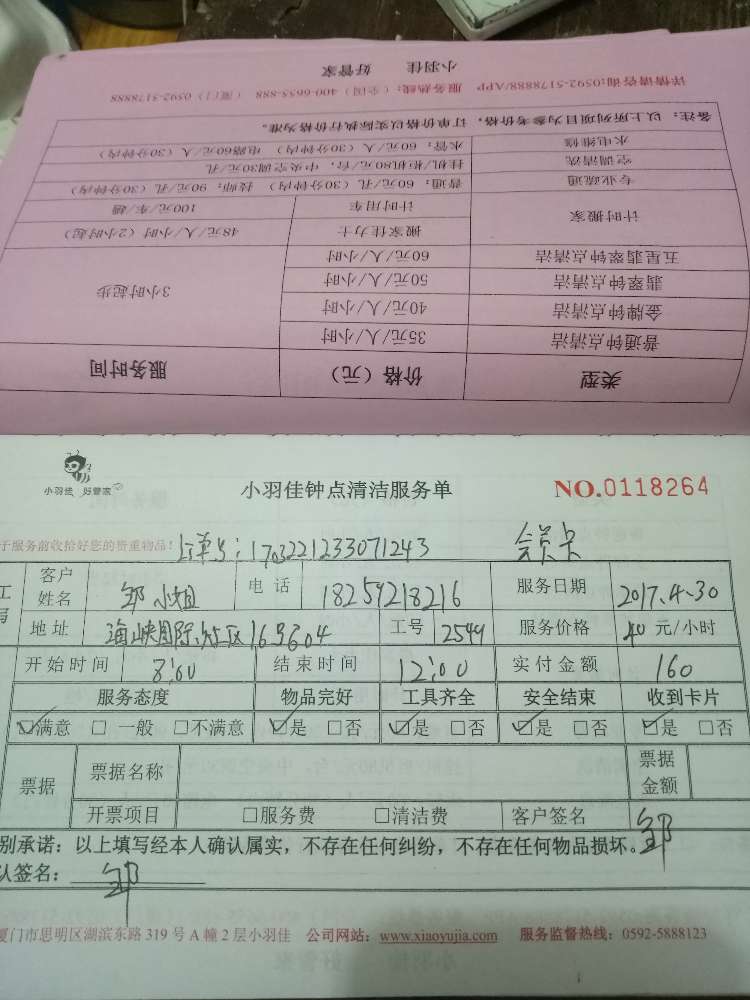 小羽佳 好管家
详情请咨询:0592-5178888/APP 服务热线:(全国)400-6655-888 (厦门)0592-5178888
类型 价格(元) 服务时间
普通钟点清洁 35元/人/小时
金牌钟点清洁 40元/人/小时 3小时起步
翡翠钟点清洁 50元/人/小时
五星翡翠钟点清洁 60元/人/小时
计时搬家 搬家佳力士 48元/人/小时(2小时起)
计时用车 100元/车/趟
专业疏通 普通:60元/孔(30分钟内) 技师:90元/孔(30分钟内)
空调清洗 挂机/柜机80元/台,中央空调30元/孔
水电维修 水管:60元/人(30分钟内) 电路60元/人(30分钟内)
备注:以上所列项目为参考价格,订单价格以实际执行价格为准。
小羽佳 好管家
小羽佳钟点清洁服务单
NO.0118264
于服务前收拾好您的贵重物品!
订单号:1703221233071243 会员卡
客户姓名 邹小姐 电话 18259218216 服务日期 2017.4.30
地址 海峡国际社区16号604 工号 2549 服务价格 40 元/小时
开始时间 8:00 结束时间 12:00 实付金额 160
服务态度 物品完好 工具齐全 安全结束 收到卡片
☑满意 □一般 □不满意 ☑是 □否 ☑是 □否 ☑是 □否 ☑是 □否
票据 票据名称 票据金额
开票项目 □服务费 □清洁费 客户签名 邹
别承诺:以上填写经本人确认属实,不存在任何纠纷,不存在任何物品损坏。
认签名: 邹
厦门市思明区湖滨东路 319 号 A 幢 2 层小羽佳 公司网站:www.xiaoyujia.com 服务监督热线:0592-5888123